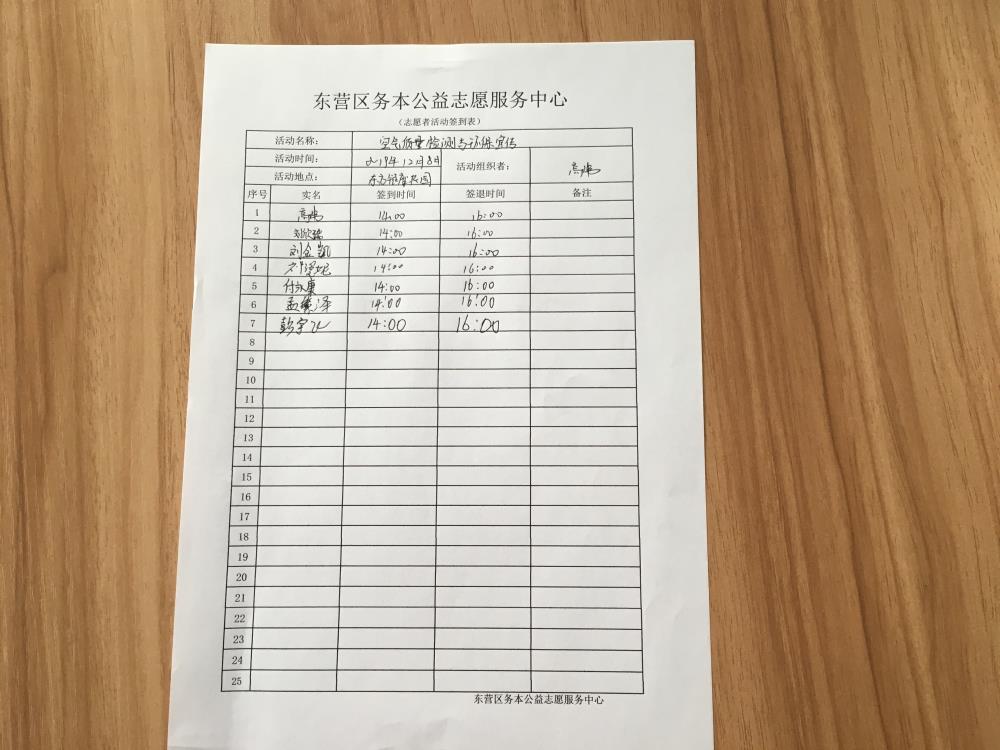 东营区务本公益志愿服务中心
（志愿者活动签到表）
活动名称： 空气质量检测与环保宣传
活动时间： 2019年12月8日 活动组织者：
活动地点：
序号 实名 签到时间 签退时间 备注
1 14:00 16:00
2 14:00 16:00
3 刘金凯 14:00 16:00
4 14:00 16:00
5 付永康 14:00 16:00
6 孟繁泽 14:00 16:00
7 彭宇飞 14:00 16:00
8
9
10
11
12
13
14
15
16
17
18
19
20
21
22
23
24
25
东营区务本公益志愿服务中心